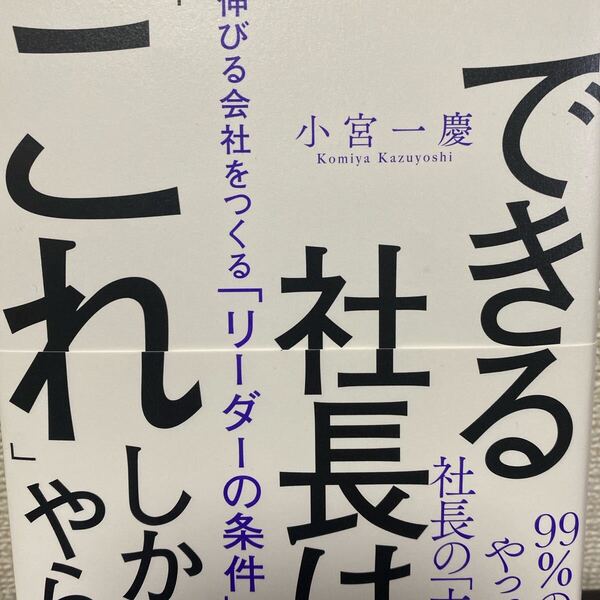 できる
社長は
これ」しかやら
伸びる会社をつくる「リーダーの条件」
小宮一慶
Komiya Kazuyoshi
99%の
やっ
社長の「